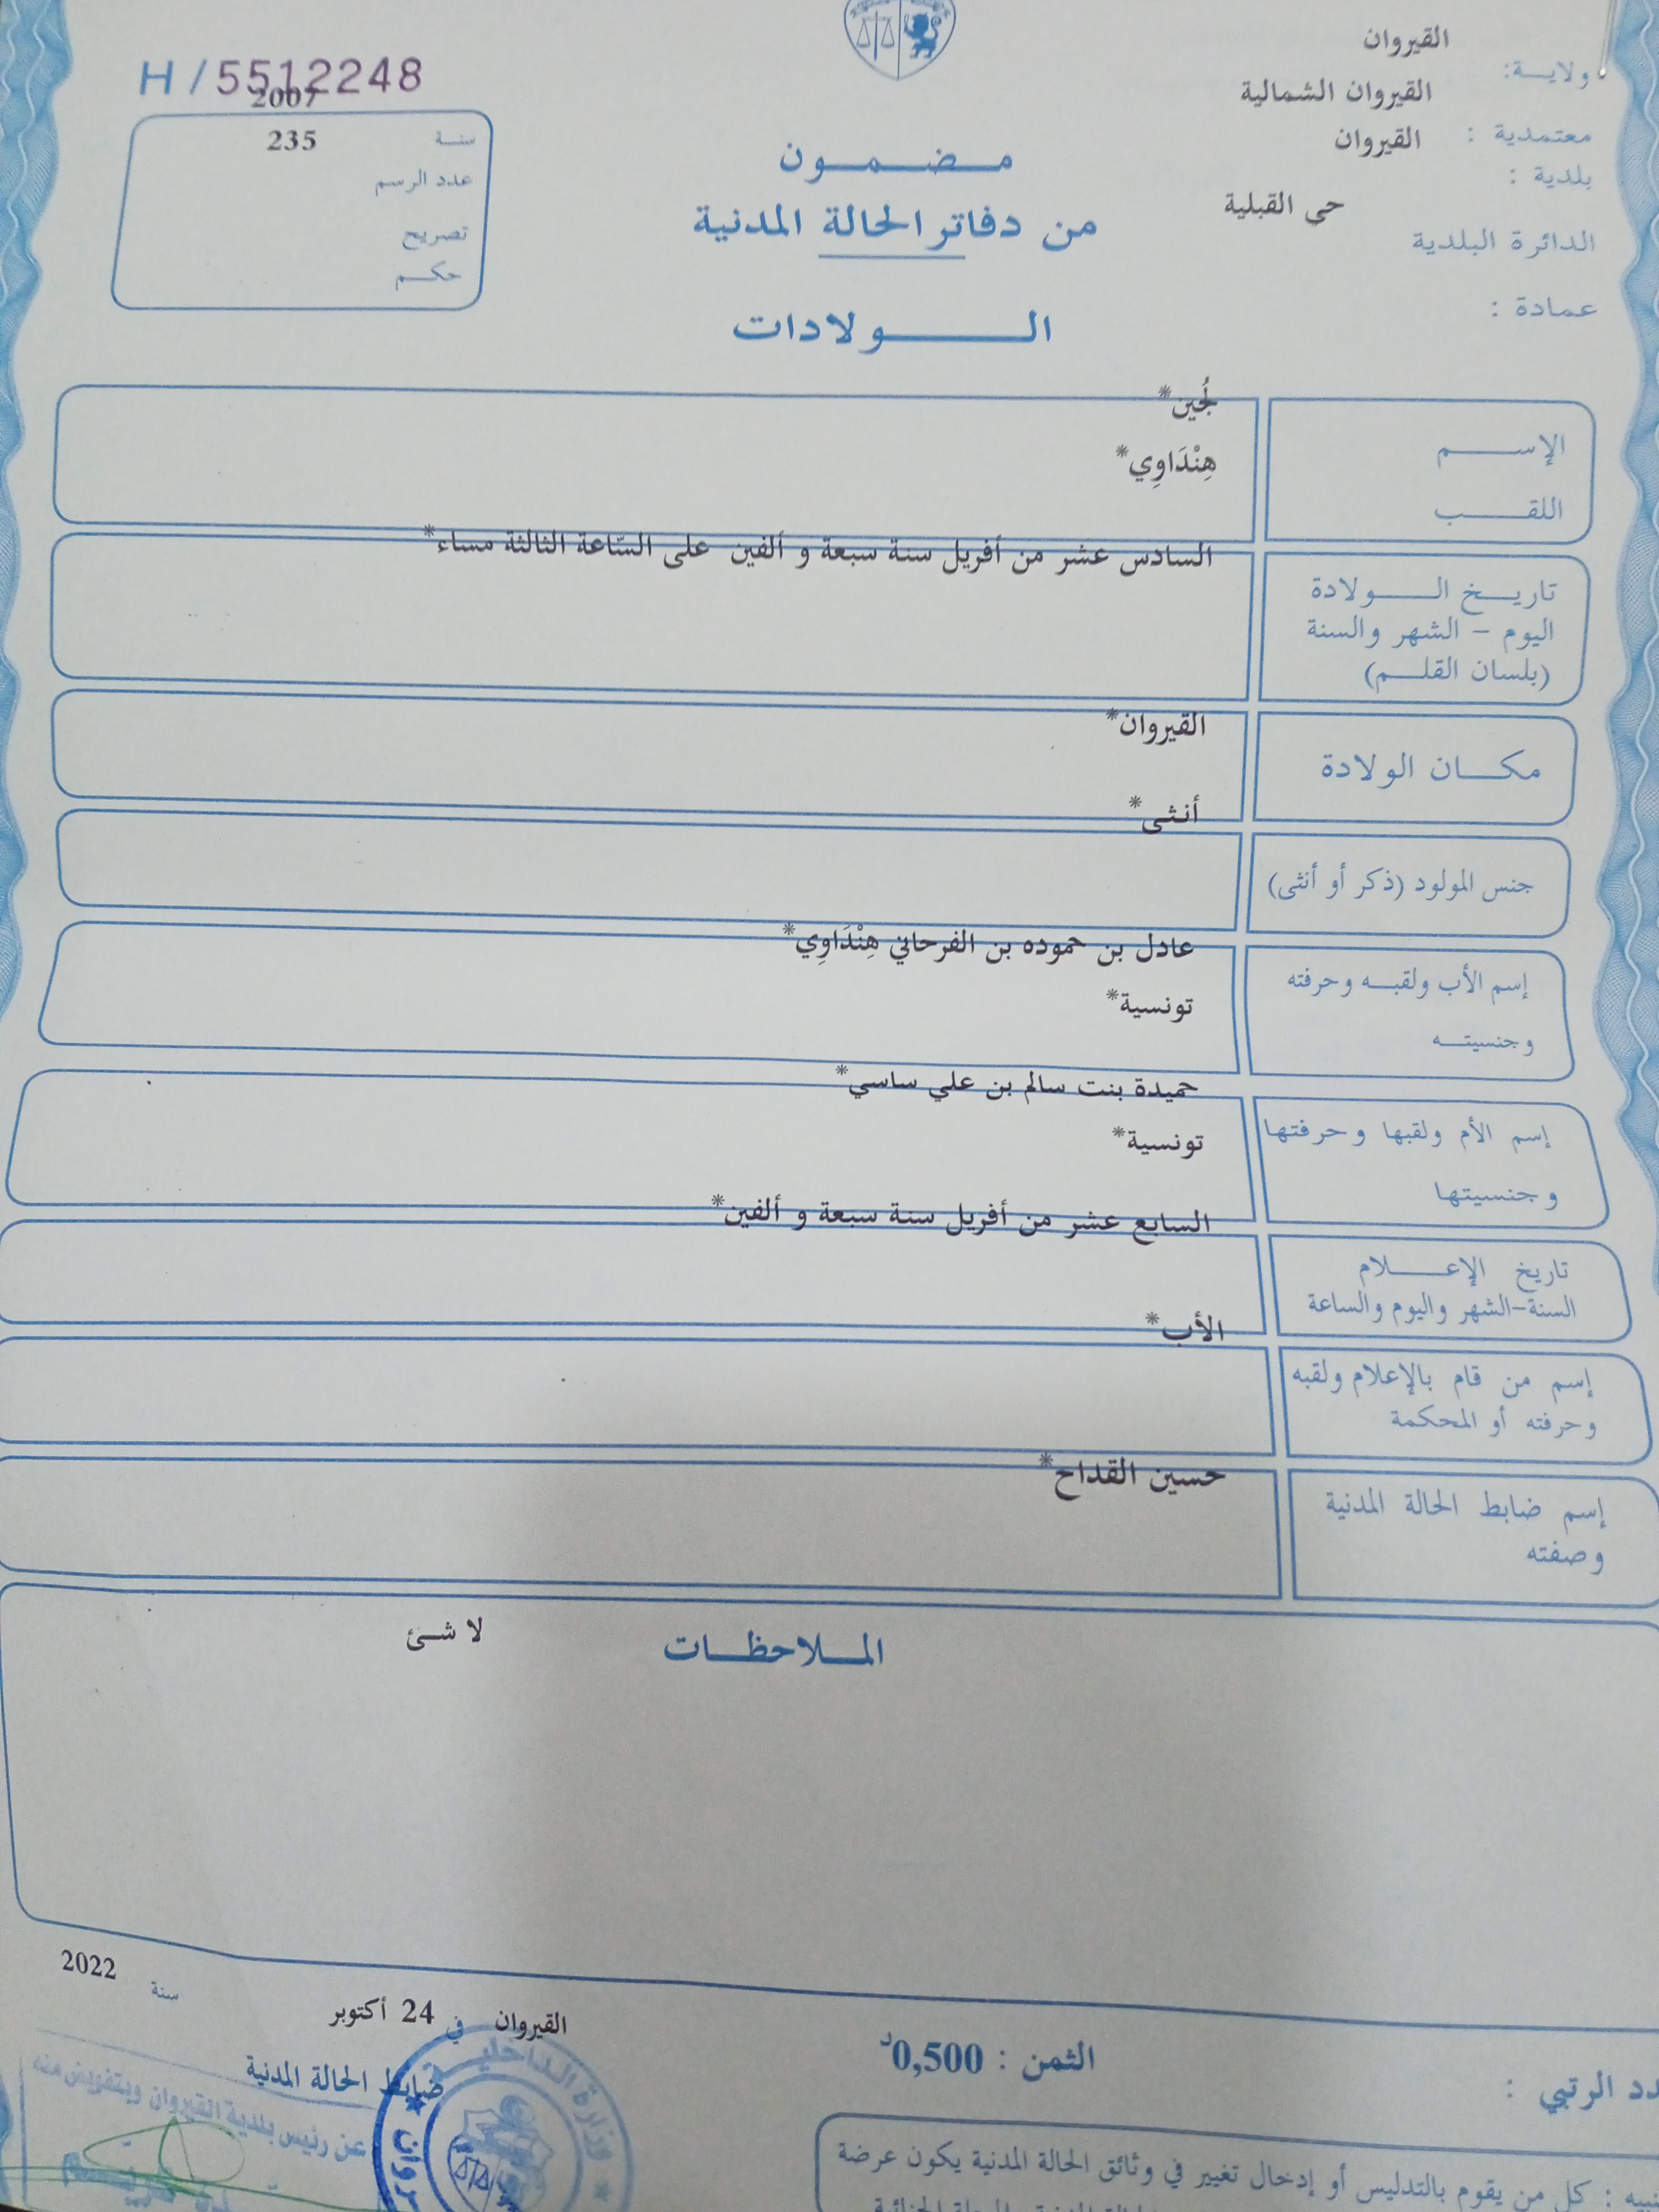 القيروان
ولاية:
القيروان الشمالية
معتمدية :
القيروان
بلدية :
حى القبلية
الدائرة البلدية
عمادة :
H / 5512248
2007
سنة
235
عدد الرسم
تصريح
حكم
مضمون
من دفاتر الحالة المدنية
الولادات
لُجين*
الإسم
هِنْدَاوِي*
اللقب
السادس عشر من أفريل سنة سبعة و ألفين على السّاعة الثالثة مساء*
تاريخ الولادة
اليوم - الشهر والسنة
(بلسان القلم)
القيروان*
مكان الولادة
أنثى*
جنس المولود (ذكر أو أنثى)
عادل بن حموده بن الفرحاني هِنْدَاوِي*
إسم الأب ولقبه وحرفته
تونسية*
وجنسيته
حميدة بنت سالم بن علي ساسي*
إسم الأم ولقبها وحرفتها
تونسية*
وجنسيتها
السابع عشر من أفريل سنة سبعة و ألفين*
تاريخ الإعلام
السنة-الشهر واليوم والساعة
الأب*
إسم من قام بالإعلام ولقبه
وحرفته أو المحكمة
حسين القداح*
إسم ضابط الحالة المدنية
وصفته
الملاحظات
لا شئ
القيروان في 24 أكتوبر سنة 2022
ضابط الحالة المدنية
عن رئيس بلدية القيروان وبتفويض منه
وزارة الداخلية
الثمن : 0,500د
دد الرتبي :
نبيه : كل من يقوم بالتدليس أو إدخال تغيير في وثائق الحالة المدنية يكون عرضة